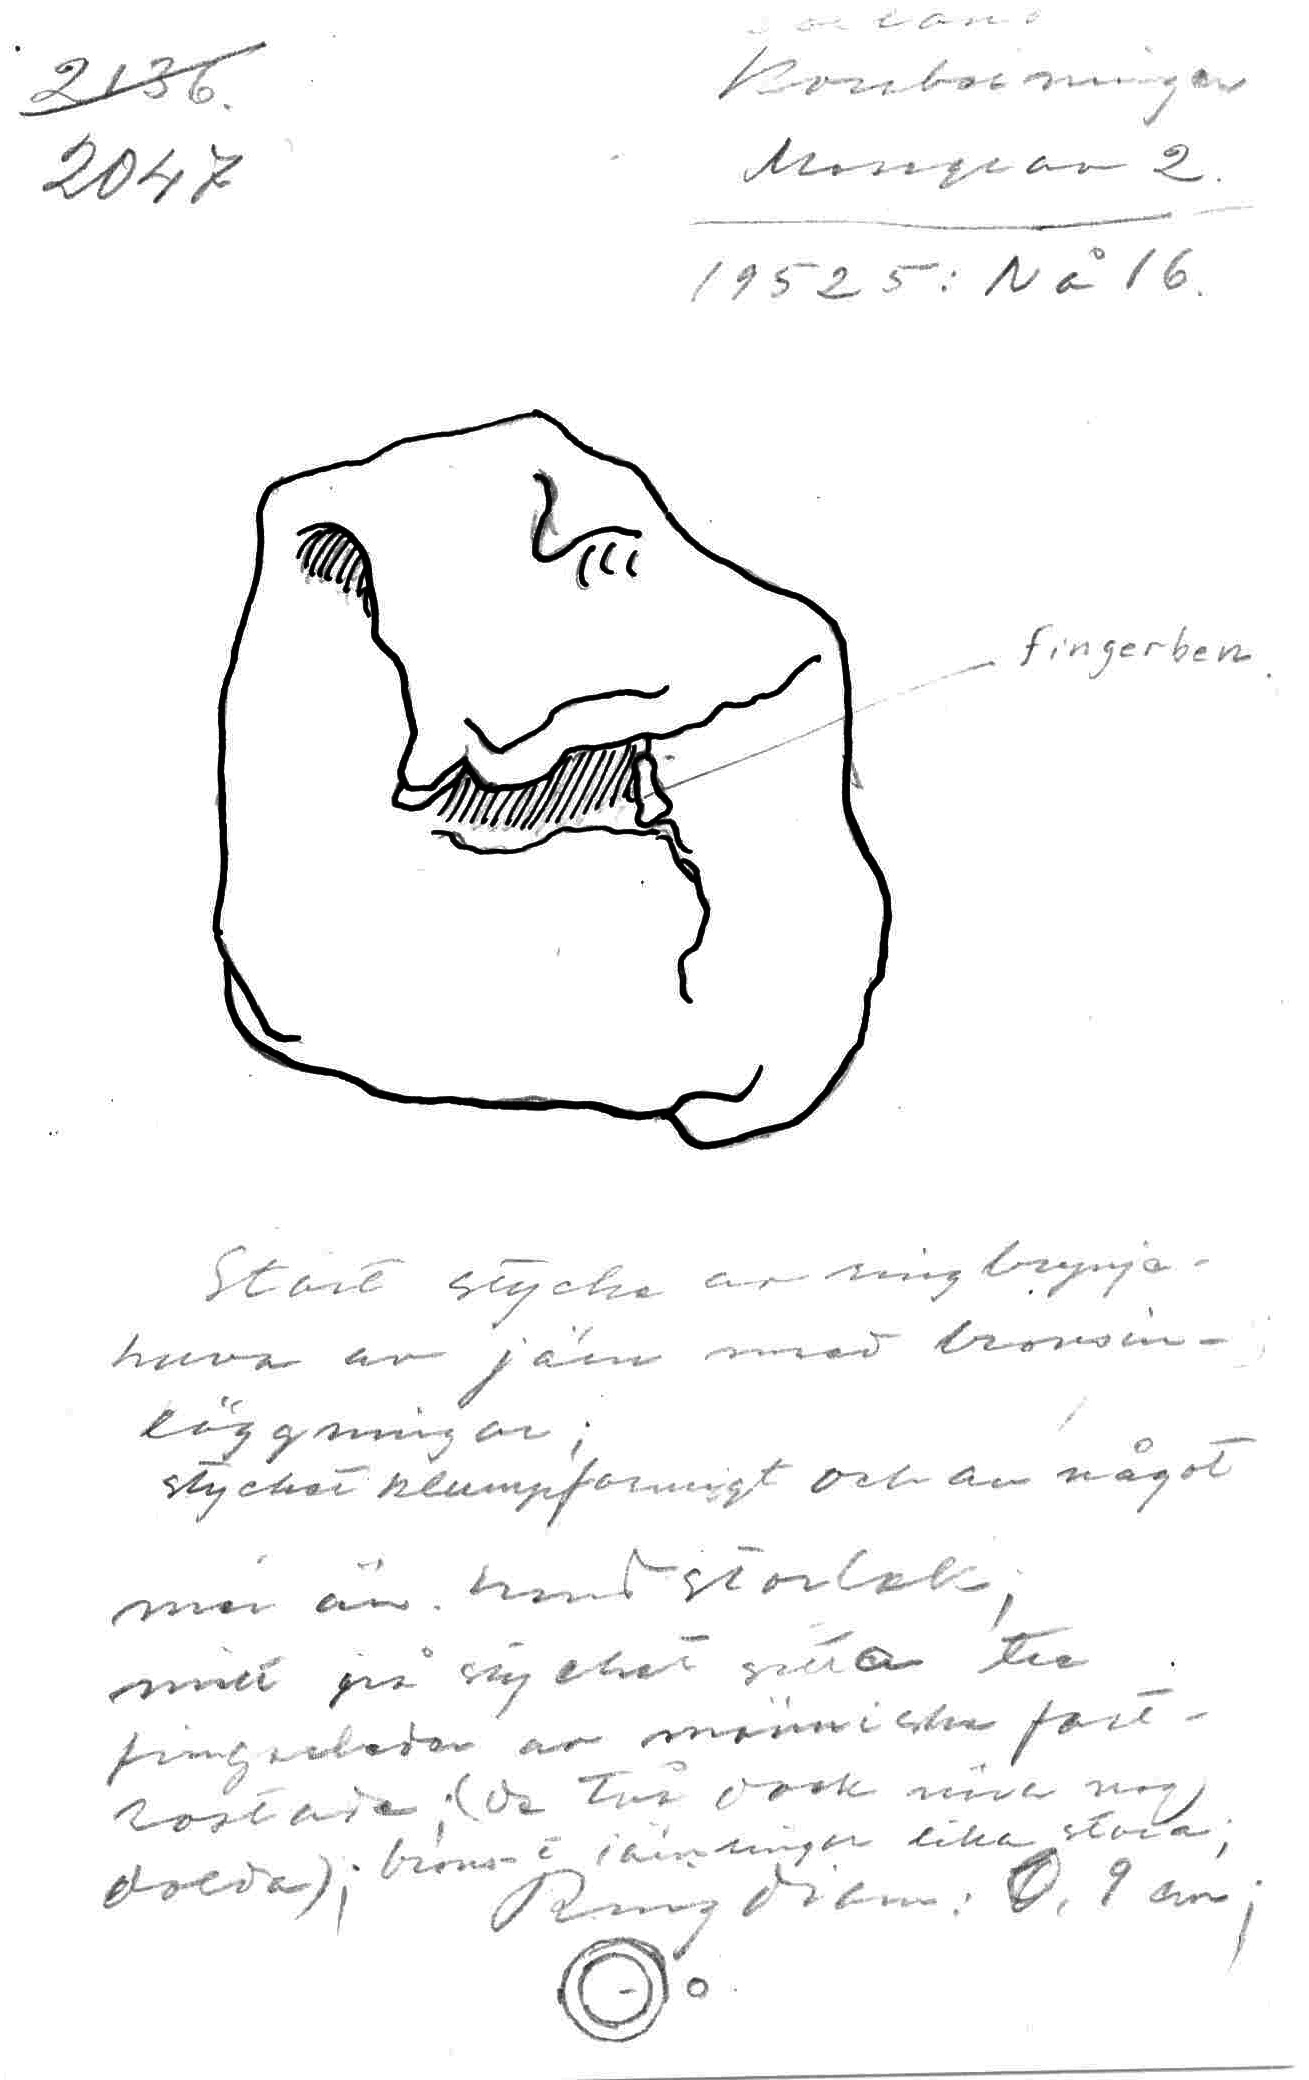 2136.
2047
Korsbetningen
Massgrav 2.
19525: Nå 16.
fingerben.
Stort stycke av ringbrynje-
huva av järn med bronsin-
läggningar;
stycket klumpformigt och av något
mer än. hand storlek;
mitt på stycket sitta tre
fingerleder av människa fast-
rostade; (de två dock nära nog
dolda); brons- & järnringar lika stora;
Ring diam: 0,9 cm;